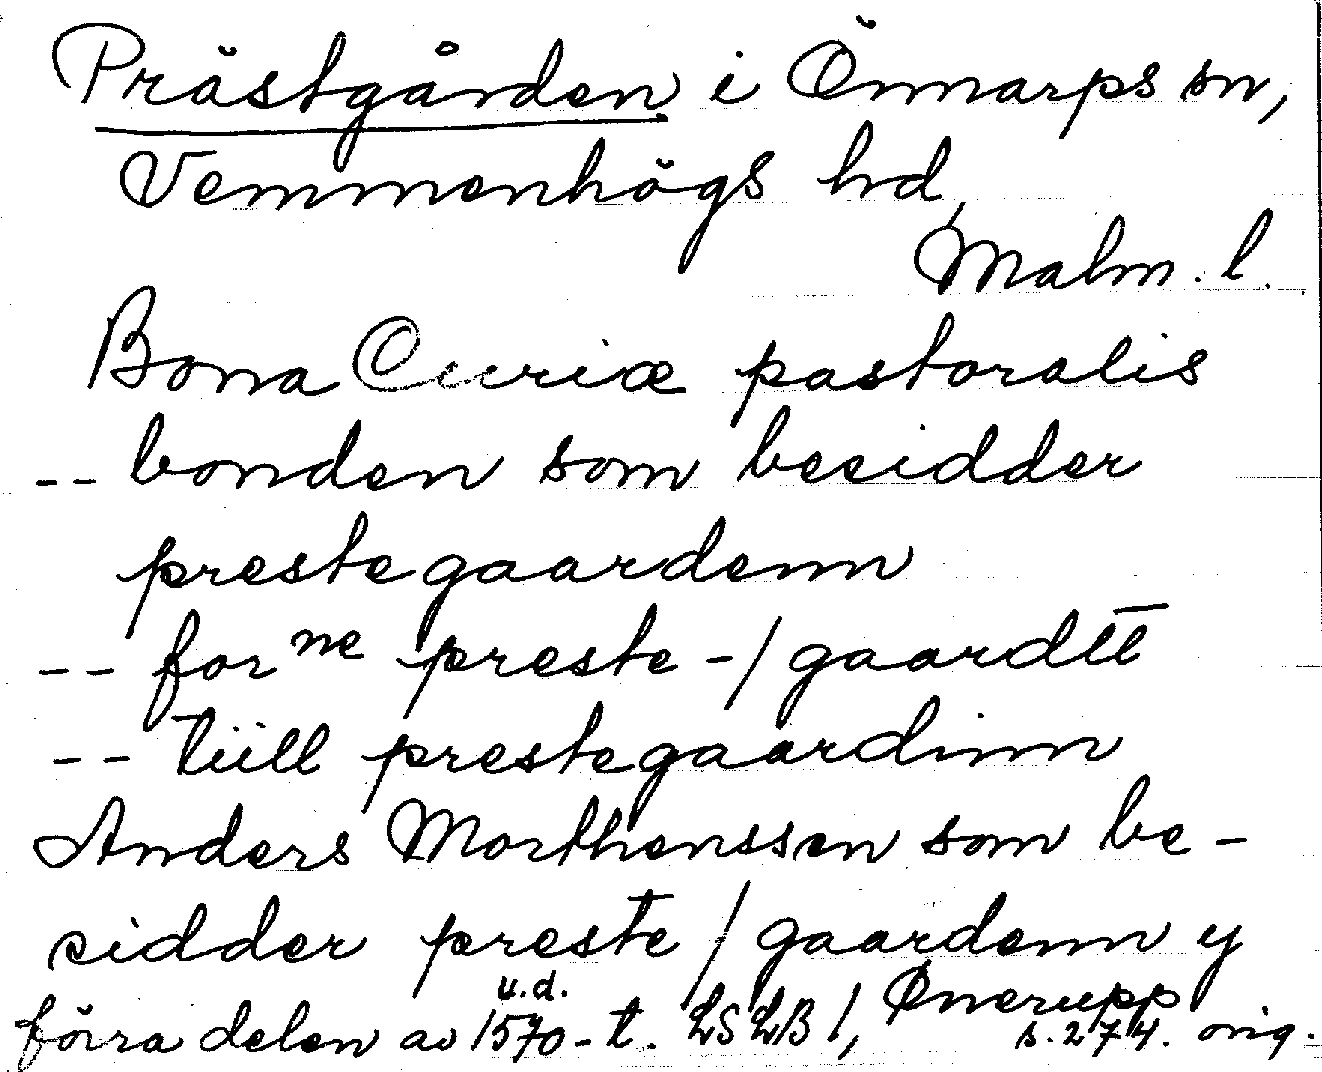 Prästgården i Önnarps sn,
Vemmenhögs hd,
Malm. l.
Bona Curiæ pastoralis
-- bonden som besidder
prestegaardenn
-- forne preste-/gaardtt
-- tiill prestegaardinn
Anders Morthenssen som be-
sidder preste/gaardenn y
förra delen av 1570-t. u.d. LSLB 1, Ønerupp
s. 274. orig.